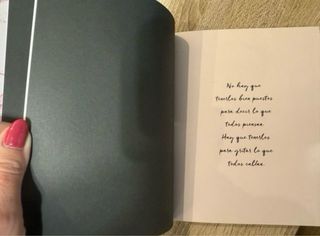 No hay que
tenerlos bien puestos
para decir lo que
todos piensan.
Hay que tenerlos
para gritar lo que
todos callan.